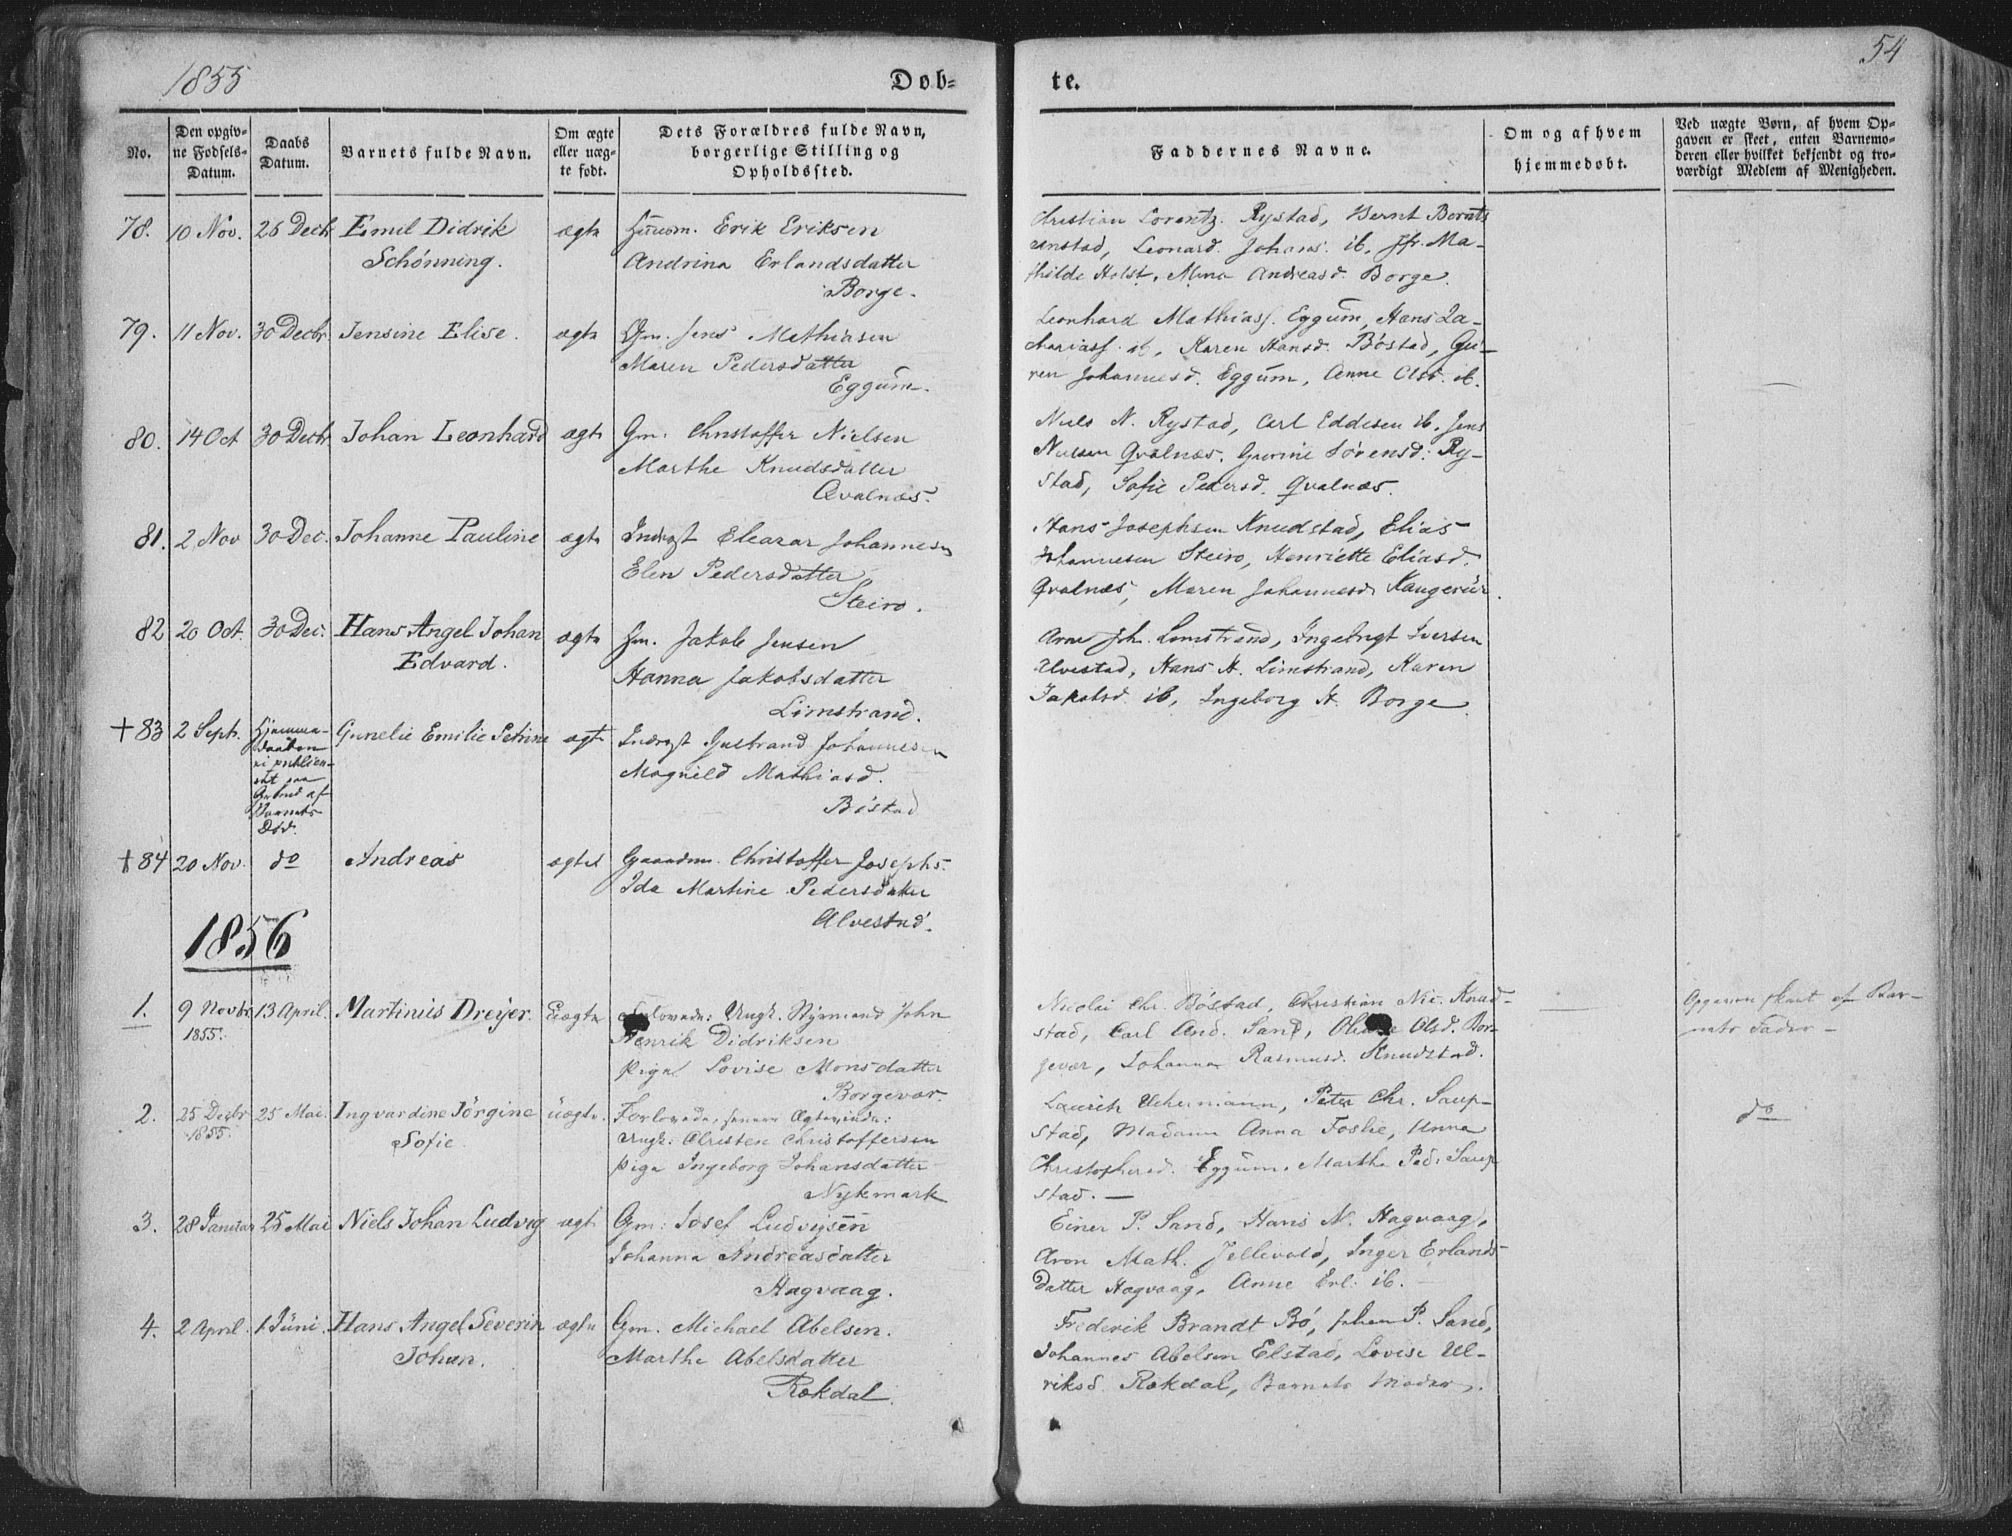 1855
Døb-
te.
54
No.
Den opgiv-
ne Fødsels-
Datum.
Daabs
Datum.
Barnets fulde Navn.
Om ægte
eller uæg-
te født.
Dets Forældres fulde Navn,
borgerlige Stilling og
Opholdssted.
Faddernes Navne.
Om og af hvem
hjemmedøbt.
Ved uægte Børn, af hvem Op-
gaven er skeet, enten Barnemo-
deren eller hvilket bekjendt og tro-
værdigt Medlem af Menigheden.
78. 10 Nov. 26 Decbr. Emil Didrik
Schønning.
ægte
Huusm. Erik Eriksen
Andrina Erlandsdatter
Borge.
Christian Lorentz. Rystad, Bernt Bernts
enstad, Leonard Johans. ib, Jfr. Ma-
thilde Holst, Mina Andreasd. Borge.
79. 11 Nov. 30 Decbr. Jensine Elise.
ægte
Gm. Jens Mathiasen
Maren Pedersdatter
Eggum.
Leonhard Mathiass. Eggum, Hans Za-
chariass. ib, Karen Hansd. Bøstad, Gu-
ren Johannesd. Eggum, Anne Olsd. ib.
80. 14 Oct 30 Decbr Johan Leonhard
ægte
Gm. Christoffer Nielsen
Marthe Knudsdatter
Qvalnæs.
Niels N. Rystad, Carl Eddisen ib, Jens
Nielsen Qvalnæs, Gurine Sørensd. Ry-
stad, Sofie Pedersd. Qvalnæs.
81. 2 Nov 30 Dec. Johanne Pauline
ægte
Inderst Eleazar Johannesen
Elen Pedersdatter
Steiro.
Hans Josephsen Knudstad, Elias
Johannesen Steiro, Henriette Eliasd.
Qvalnæs, Maren Johannesd. Haugerür.
82 20 Oct. 30 Dec. Hans Angel Johan
Edvard.
ægte
Hm. Jakob Jensen
Hanna Jakobsdatter
Limstrand.
Arne Joh. Limstrand, Ingebrigt Iversen
Alvestad, Hans H. Limstrand, Karen
Jakobsd. ib, Ingeborg H. Borge
+ 83 2 Septr. Hjemme-
daaben
ei publice-
ret paa
Grund af
Barnets
Død.
Gunelie Emilie Petrine
ægte
Inderst Johannesen
Magnild Mathiasd.
Bøstad
+ 84 20 Nov. do Andreas
ægte
Gaardm. Christoffer Josephs.
Ida Martine Pedersdatter
Alvestad.
1856
1. 9 Novbr. 13 April. Martinus Dreyer.
1855.
Uægte
Forlovede: Ungk. Styrmand John
Henrik Didriksen
Pige Lovise Monsdatter
Borgevær.
Nicolai Chr. Bøstad, Christian Nic. Knud-
stad, Carl And. Sand, Olsd. Bor-
gevær, Johanna Rasmusd. Knudstad.
Opgaven skeet af Bar-
nets Fader —
2. 25 Decbr. 25 Mai. Ingvardine Jörgine
1855.
Sofie.
üægte.
Forlovede, Ægteviede:
Ungk: Christen Christoffersen
Pige Ingeborg Johansdatter
Nykmark
Laurith Uchermann, Peter Chr. Saup-
stad, Madame Anna Foslie, Unna
Christophersd. Eggum, Marthe Ped. Saup
stad. —
do
3. 28 Januar 25 Mai Niels Johan Ludvig
ægte
Gm: Josef Ludvigsen
Johanna Andreasdatter
Hagvaag.
Einer P. Sand, Hans N. Hagvaag,
Aron Math. Jellevold, Inger Erlands
datter Hagvaag, Anne Erl. ib.
4. 2 April. 1 Jüni. Hans Angel Severin
Johan.
ægte
Gm. Michael Abelsen.
Marthe Abelsdatter
Rekdal.
Frederik Brandt Bø, Johan P. Sand,
Johannes Abelsen Elstad, Lovise Ul-
riksd. Rekdal, Barnets Moder.